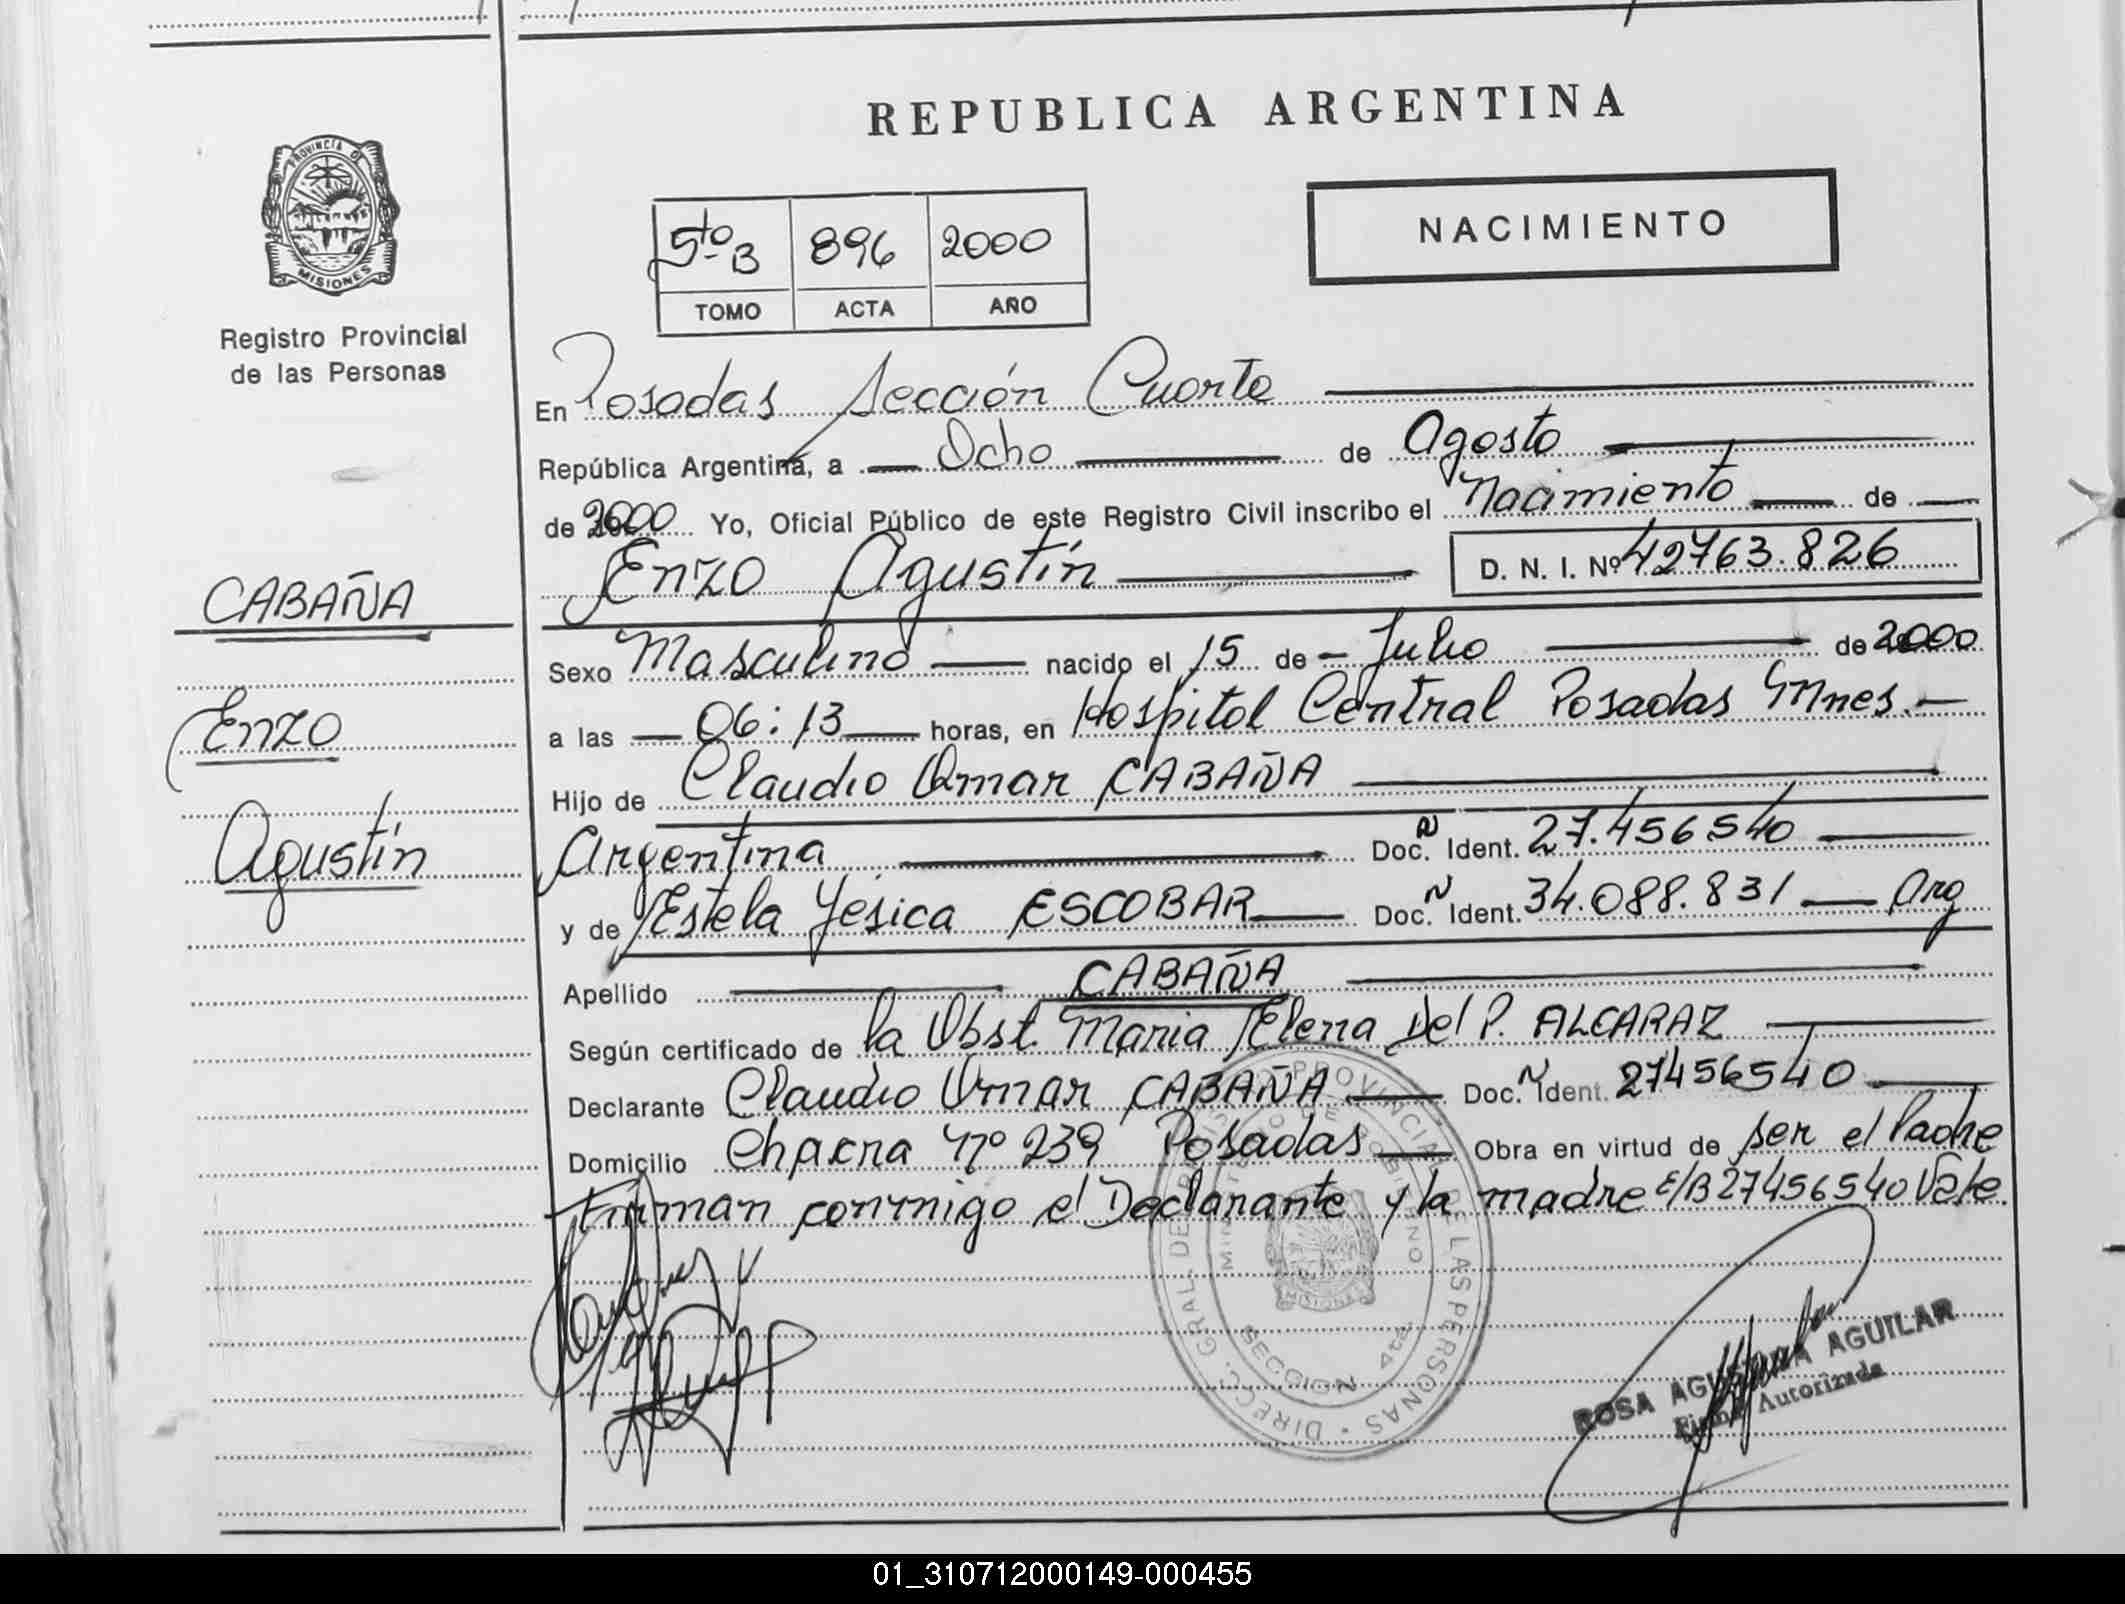 REPUBLICA ARGENTINA
PROVINCIA DE
MISIONES
Registro Provincial
de las Personas
5to B 896 2000
TOMO ACTA AÑO
NACIMIENTO
En Posadas Sección Cuarta
República Argentina, a Ocho de Agosto
de 2000 Yo, Oficial Público de este Registro Civil inscribo el Nacimiento de
Enzo Agustín D. N. I. Nº 42763.826
CABAÑA
Enzo
Agustín
Sexo Masculino nacido el 15 de Julio de 2000
a las 06:13 horas, en Hospital Central Posadas Mnes.
Hijo de Claudio Omar CABAÑA
Argentina Doc. Ident. 27.456540
y de Estela Yesica ESCOBAR Doc. Ident. 34.088.831 Arg
Apellido CABAÑA
Según certificado de la Obst. Maria Elena Del P. ALCARAZ
Declarante Claudio Omar CABAÑA Doc. Ident. 27456540
Domicilio Chacra Nº 239 Posadas Obra en virtud de ser el Padre
Firman conmigo el Declarante y la madre E/B 27456540 Vale
DIRECC. GRAL. DE REGISTRO PROVINCIAL DE LAS PERSONAS
MINISTERIO DE GOBIERNO
MISIONES
SECCION 4ta.
ROSA AGUSTINA AGUILAR
Firma Autorizada
01_310712000149-000455